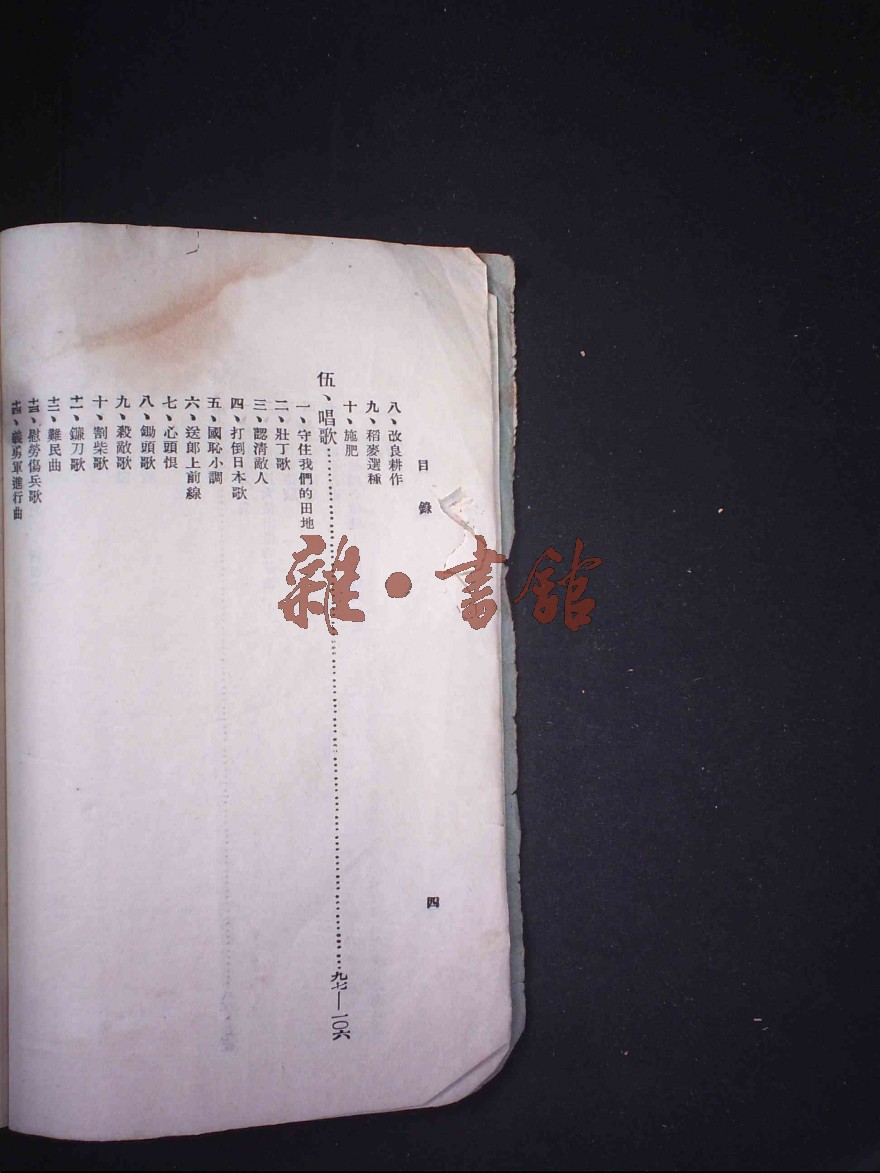 目錄
四
八、改良耕作
九、稻麥選種
十、施肥
伍、唱歌……九七—一〇六
一、守住我們的田地
二、壯丁歌
三、認清敵人
四、打倒日本歌
五、國恥小調
六、送郎上前線
七、心頭恨
八、鋤頭歌
九、殺敵歌
十、割柴歌
十一、鐮刀歌
十二、難民曲
十三、慰勞傷兵歌
十四、義勇軍進行曲
雜·書館